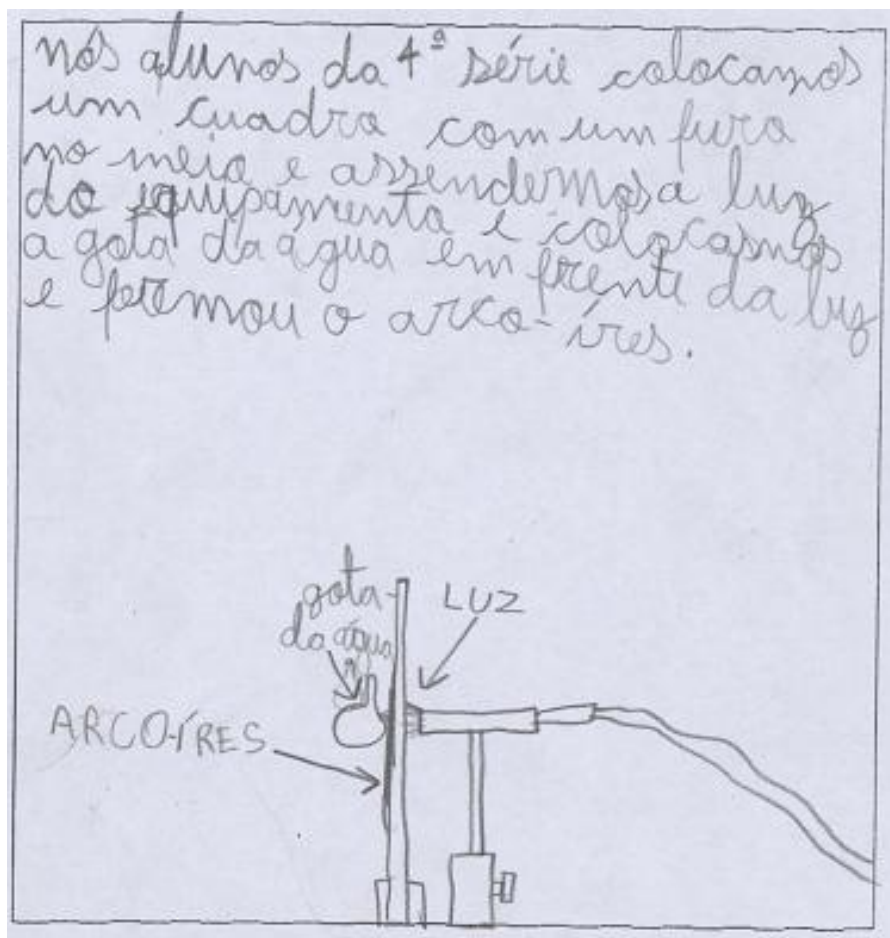 nós alunos da 4ª série colocamos
um cuadro com um furo
no meio e assendemos a luz
do equipamento e colocamos
a gota da água em frente da luz
e formou o arco-íres.
gota
da água
LUZ
ARCO-ÍRES